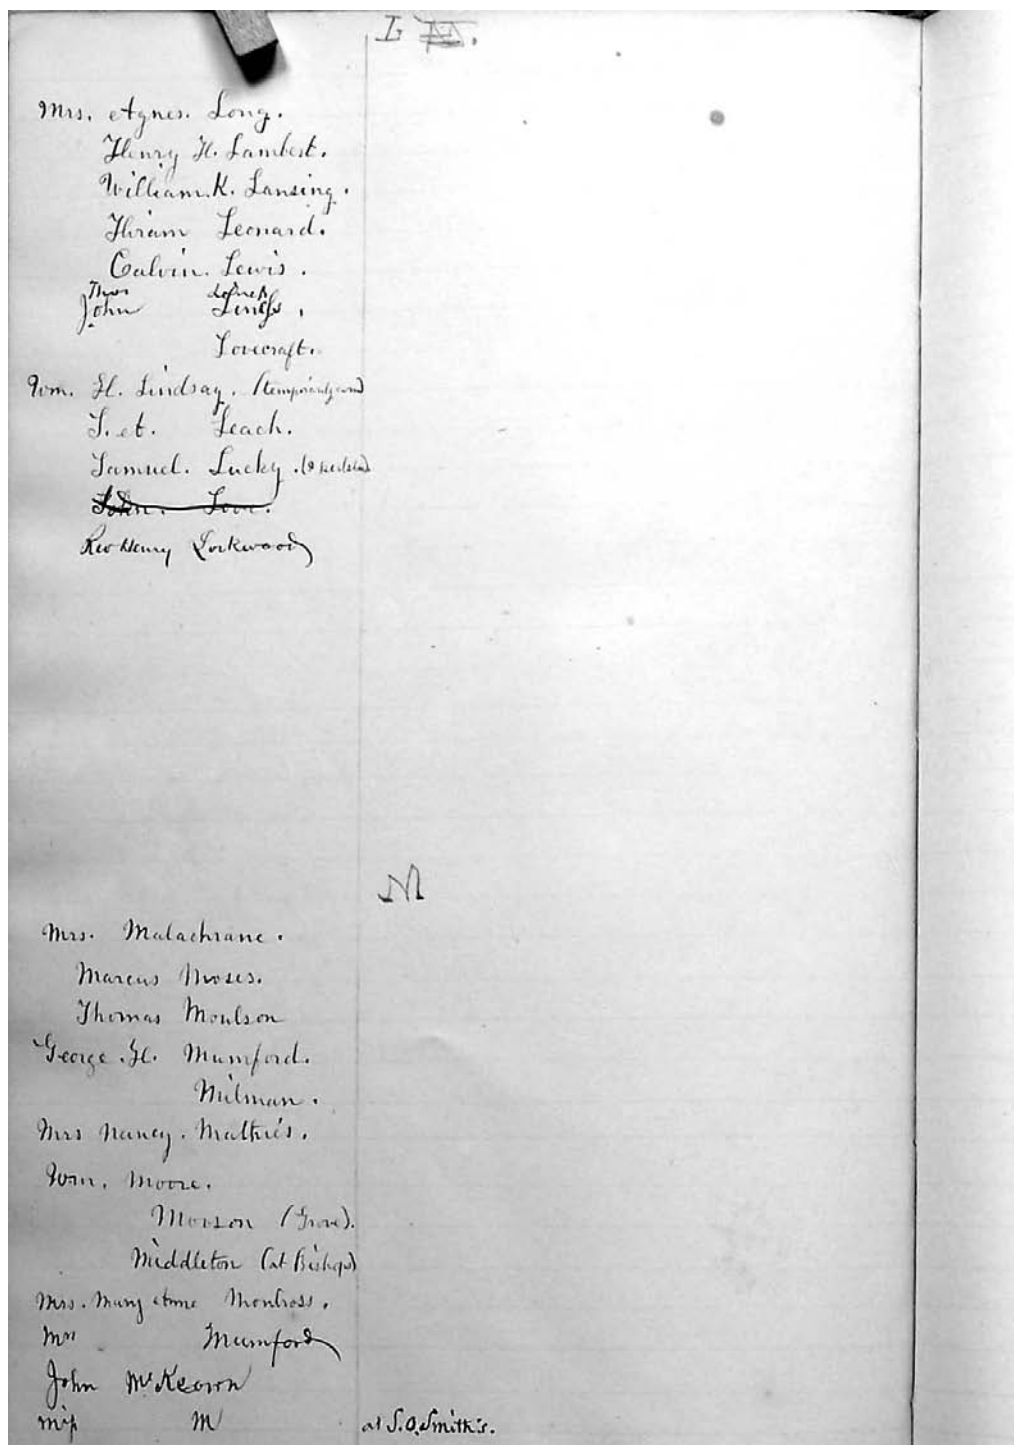 L M.
Mrs. Agnes. Long.
Henry H. Lambert.
William. K. Lansing.
Hiram Leonard.
Calvin. Lewis.
Thos
John
Lovecraft.
Wm. H. Lindsay. (temporarily
S. A. Leach.
Samuel. Lucky.
John. Love.
Rev Henry Lockwood
M
Mrs. Malachrane.
Marcus Moses.
Thomas Moulson
George. H. Mumford.
Milman.
Mrs Nancy. Mathies.
Wm. Moore.
Morson (Grove).
Middleton (at Bishops)
Mrs. Mary Anne Montross.
Mrs Mumford
John McKeown
Miss M at S. O. Smith's.